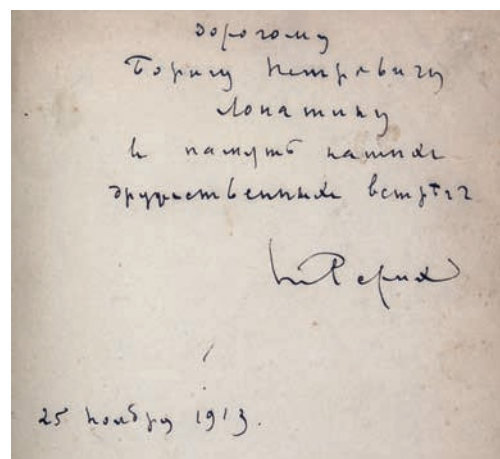 дорогому
Борису Петровичу
Лопатину
в память наших
дружественных встрѣч
Н Рерих
25 ноября 1913.